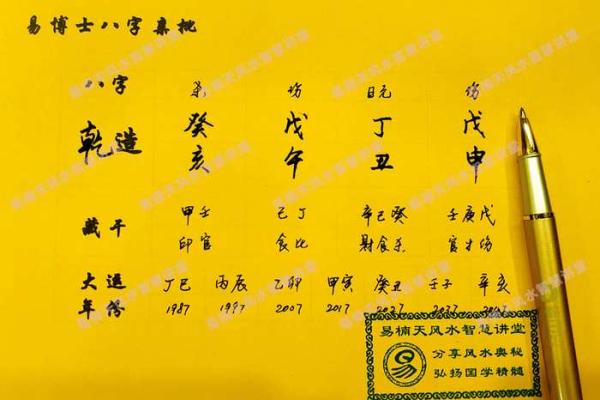 易博士八字亲批
八字 杀 伤 日元 伤
乾造 癸 戊 丁 戊
亥 午 丑 申
藏干 甲壬 己丁 辛己癸 壬庚戊
印官 食比 财食杀 官才伤
大运 丁巳 丙辰 乙卯 甲寅 癸丑 壬子 辛亥
年份 1987 1997 2007 2017 2027 2037
易楠天风水智慧讲堂
分享风水奥秘
弘扬国学精髓